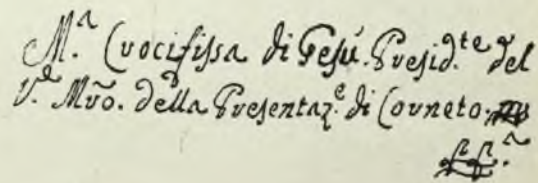 M.ª Crocifissa di Gesú. Presid.te del
V.e Mrõ. della Presentaz.e di Corneto.